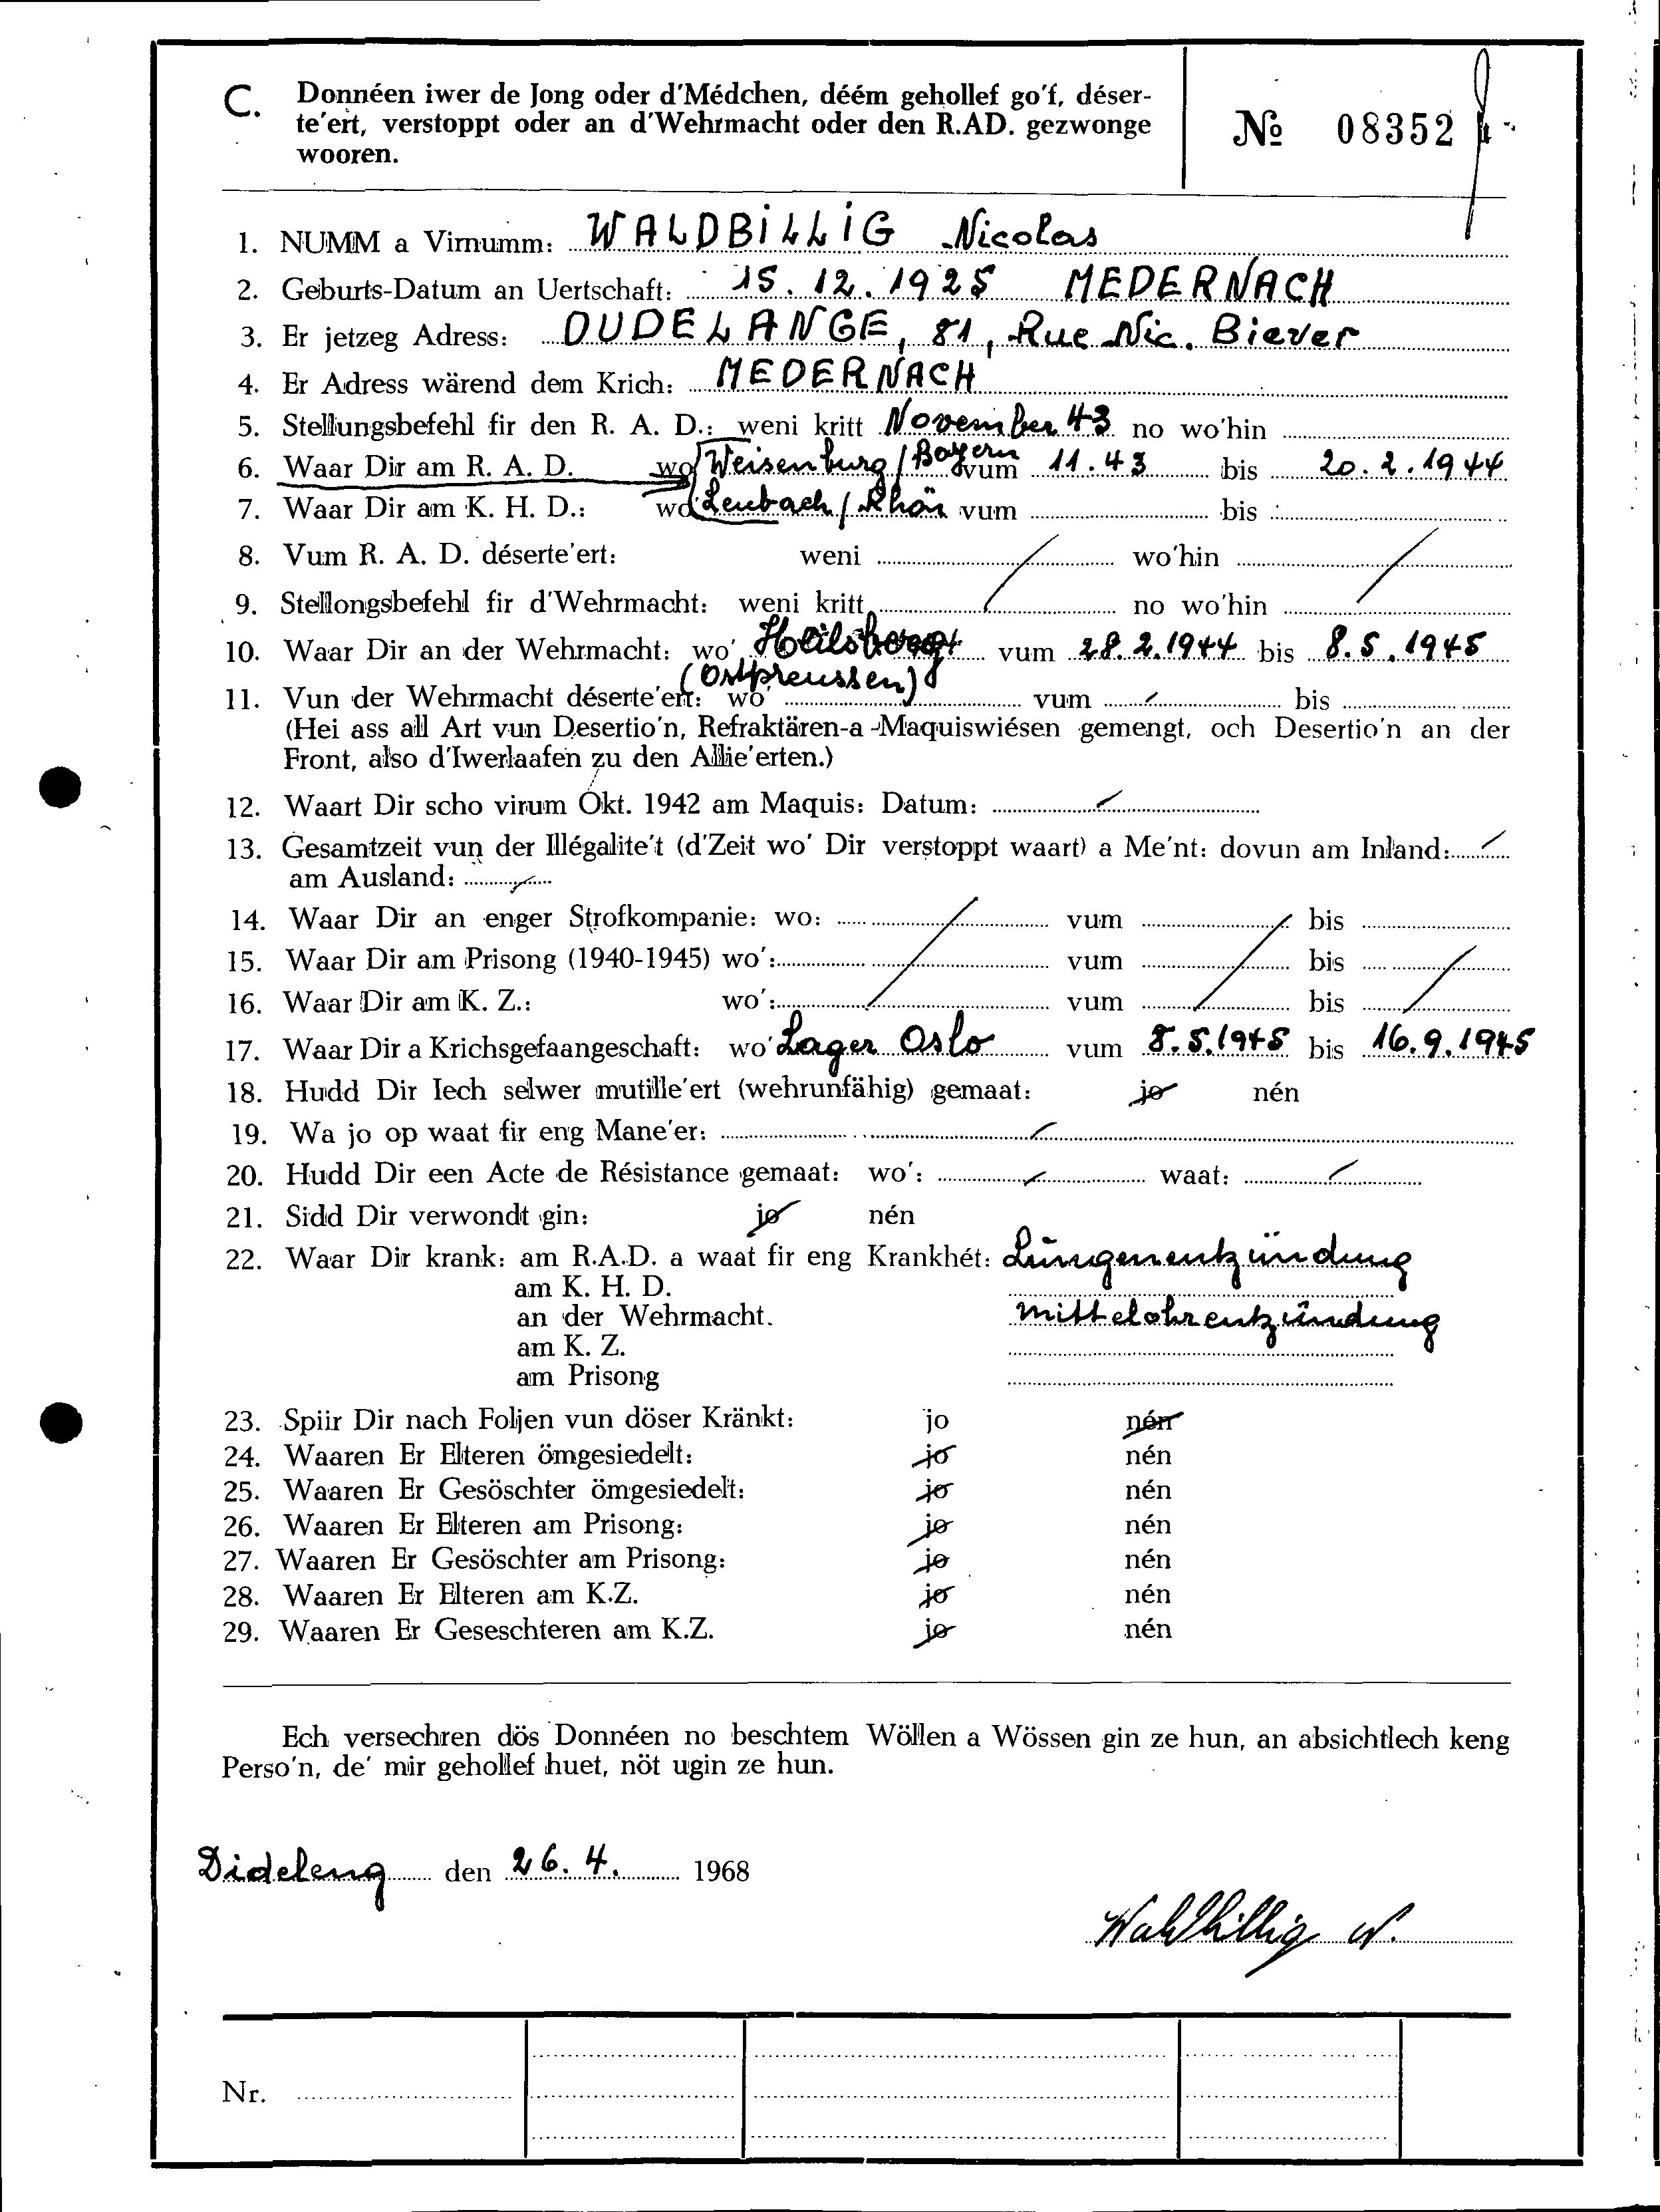 C. Donnéen iwer de Jong oder d'Médchen, déém gehollef go'f, déser-
te'ert, verstoppt oder an d'Wehrmacht oder den R.AD. gezwonge
wooren.
№ 08352
1. NUMM a Virnumm: WALDBILLIG Nicolas
2. Geburts-Datum an Uertschaft: 15.12.1925 MEDERNACH
3. Er jetzeg Adress: DUDELANGE, 81, Rue Nic. Biever
4. Er Adress wärend dem Krich: MEDERNACH
5. Stellungsbefehl fir den R. A. D.: weni kritt November 43 no wo'hin
6. Waar Dir am R. A. D. wo Weisenburg / Bayern vum 11.43 bis 20.2.1944
7. Waar Dir am K. H. D.: wo Leubach / Rhön vum bis
8. Vum R. A. D. déserte'ert: weni / wo'hin /
9. Stellongsbefehl fir d'Wehrmacht: weni kritt no wo'hin
10. Waar Dir an der Wehrmacht: wo' vum 28.2.1944 bis 8.5.1945
(Ostpreussen)
11. Vun der Wehrmacht déserte'ert: wo' vum bis
(Hei ass all Art vun Desertio'n, Refraktären-a -Maquiswiésen gemengt, och Desertio'n an der
Front, also d'Iwerlaafen zu den Allie'erten.)
12. Waart Dir scho virum Okt. 1942 am Maquis: Datum:
13. Gesamtzeit vun der Illégalite't (d'Zeit wo' Dir verstoppt waart) a Me'nt: dovun am Inland:
am Ausland:
14. Waar Dir an enger Strofkompanie: wo: vum bis
15. Waar Dir am Prisong (1940-1945) wo': vum bis
16. Waar Dir am K. Z.: wo': vum bis
17. Waar Dir a Krichsgefaangeschaft: wo' Lager Oslo vum 8.5.1945 bis 16.9.1945
18. Hudd Dir Iech selwer mutille'ert (wehrunfähig) gemaat: jo nén
19. Wa jo op waat fir eng Mane'er:
20. Hudd Dir een Acte de Résistance gemaat: wo': waat:
21. Sidd Dir verwondt gin: jo nén
22. Waar Dir krank: am R.A.D. a waat fir eng Krankhét: Lungenentzündung
am K. H. D.
an der Wehrmacht. Mittelohrentzündung
am K. Z.
am Prisong
23. Spiir Dir nach Foljen vun döser Kränkt: jo nén
24. Waaren Er Elteren ömgesiedelt: jo nén
25. Waaren Er Gesöschter ömgesiedelt: jo nén
26. Waaren Er Elteren am Prisong: jo nén
27. Waaren Er Gesöschter am Prisong: jo nén
28. Waaren Er Elteren am K.Z. jo nén
29. Waaren Er Geseschteren am K.Z. jo nén
Ech versechren dös Donnéen no beschtem Wöllen a Wössen gin ze hun, an absichtlech keng
Perso'n, de' mir gehollef huet, nöt ugin ze hun.
Dideleng den 26.4. 1968
Waldbillig N.
Nr.